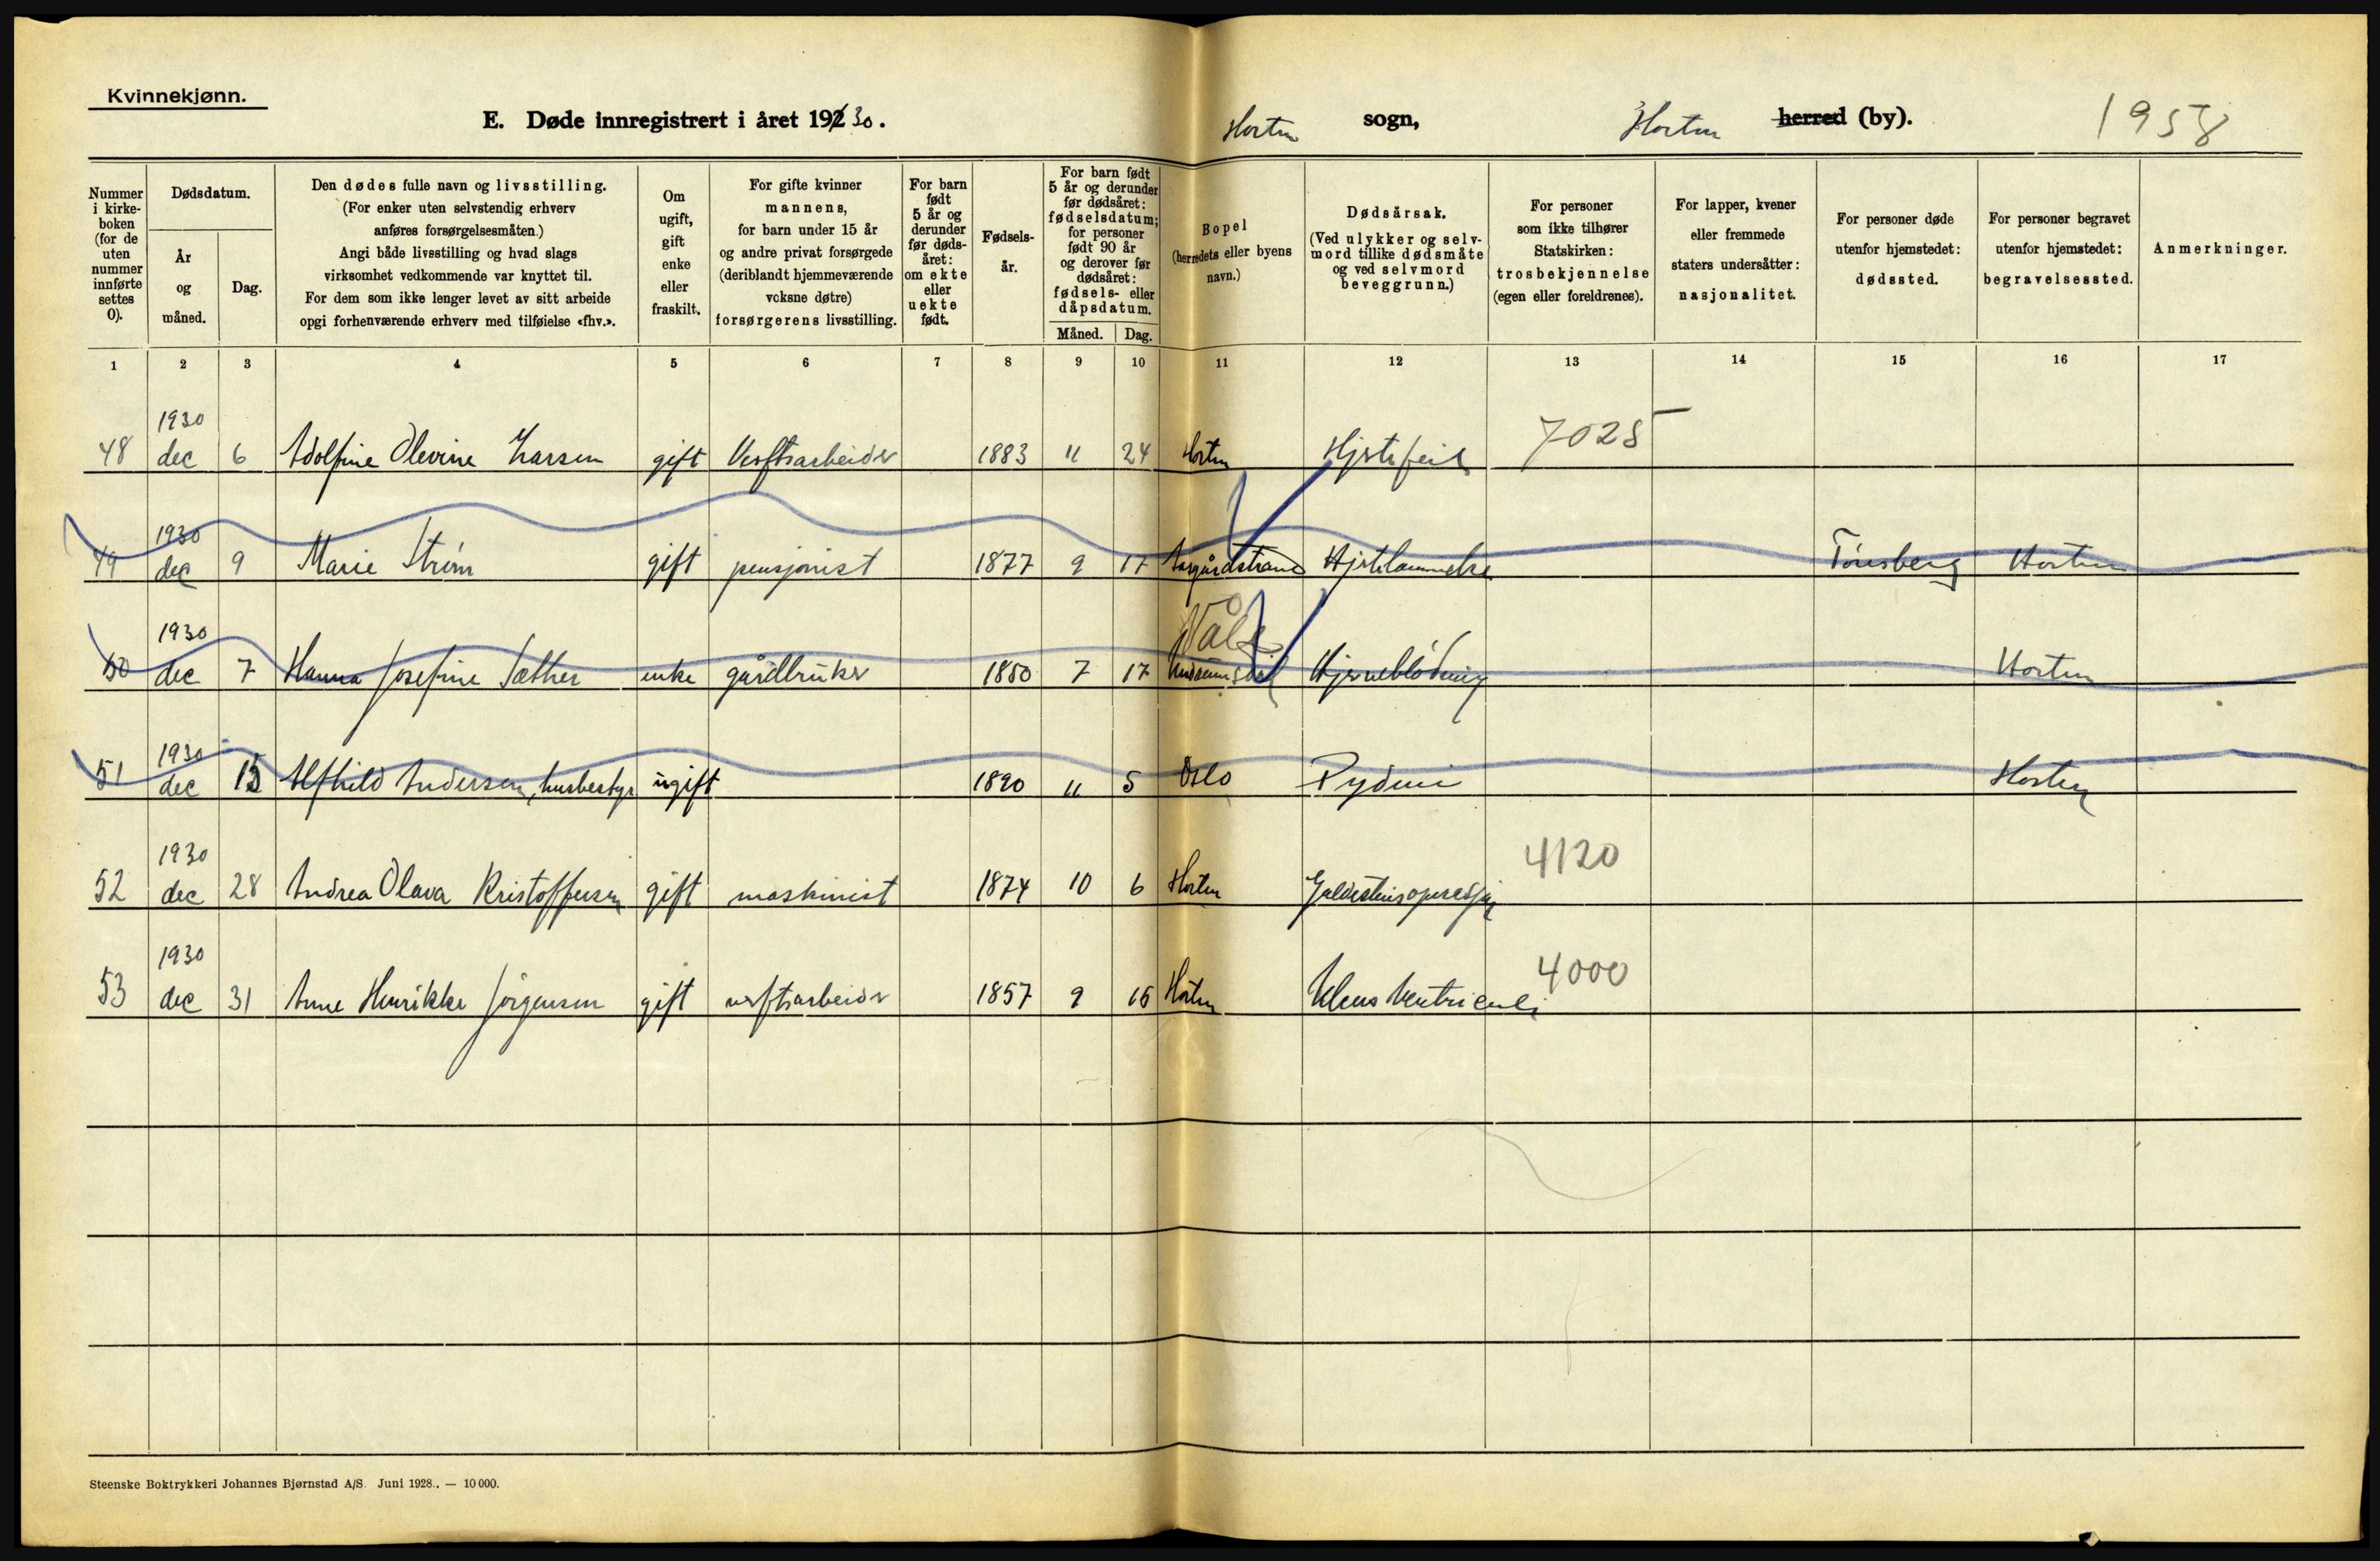 Kvinnekjønn.
E. Døde innregistrert i året 1930.
Horten sogn, Horten herred (by). 1958
Nummer i kirke-boken (for de uten nummer innførte settes 0).
Dødsdatum.
År og måned.
Dag.
Den dødes fulle navn og livsstilling.
(For enker uten selvstendig erhverv
anføres forsørgelsesmåten.)
Angi både livsstilling og hvad slags
virksomhet vedkommende var knyttet til.
For dem som ikke lenger levet av sitt arbeide
opgi forhenværende erhverv med tilføielse «fhv.».
Om ugift, gift enke eller fraskilt.
For gifte kvinner
mannens,
for barn under 15 år
og andre privat forsørgede
(deriblandt hjemmeværende
voksne døtre)
forsørgerens livsstilling.
For barn født 5 år og derunder før døds-året: om ekte eller uekte født.
Fødsels-år.
For barn født
5 år og derunder
før dødsåret:
fødselsdatum;
for personer
født 90 år
og derover før
dødsåret:
fødsels- eller
dåpsdatum.
Måned. Dag.
Bopel
(herredets eller byens
navn.)
Dødsårsak.
(Ved ulykker og selv-
mord tillike dødsmåte
og ved selvmord
beveggrunn.)
For personer
som ikke tilhører
Statskirken:
trosbekjennelse
(egen eller foreldrenes).
For lapper, kvener
eller fremmede
staters undersåtter:
nasjonalitet.
For personer døde
utenfor hjemstedet:
dødssted.
For personer begravet
utenfor hjemstedet:
begravelsessted.
Anmerkninger.
1 2 3 4 5 6 7 8 9 10 11 12 13 14 15 16 17
48 1930 dec 6 Adolfine Olevine Larsen gift Verftsarbeider 1883 11 24 Horten Hjertefeil 7025
49 1930 dec 9 Marie Strøm gift pensjonist 1877 9 17 Aasgårdstrand Hjertelammelse Tønsberg Horten
Våle
50 1930 dec 7 Hanna Josefine Sæther enke gårdbruker 1850 7 17 Hjerneblødning Horten
51 1930 dec 15 Alfhild Andersen, husbestyr ugift 1890 11 5 Oslo Pyämi Horten
52 1930 dec 28 Andrea Olava Kristoffersen gift maskinist 1874 10 6 Horten Galdestensoperasjon 4120
53 1930 dec 31 Anne Henrikke Jørgensen gift verftsarbeider 1857 9 15 Horten Ulcus Ventriculi 4000
Steenske Boktrykkeri Johannes Bjørnstad A/S. Juni 1928. — 10000.